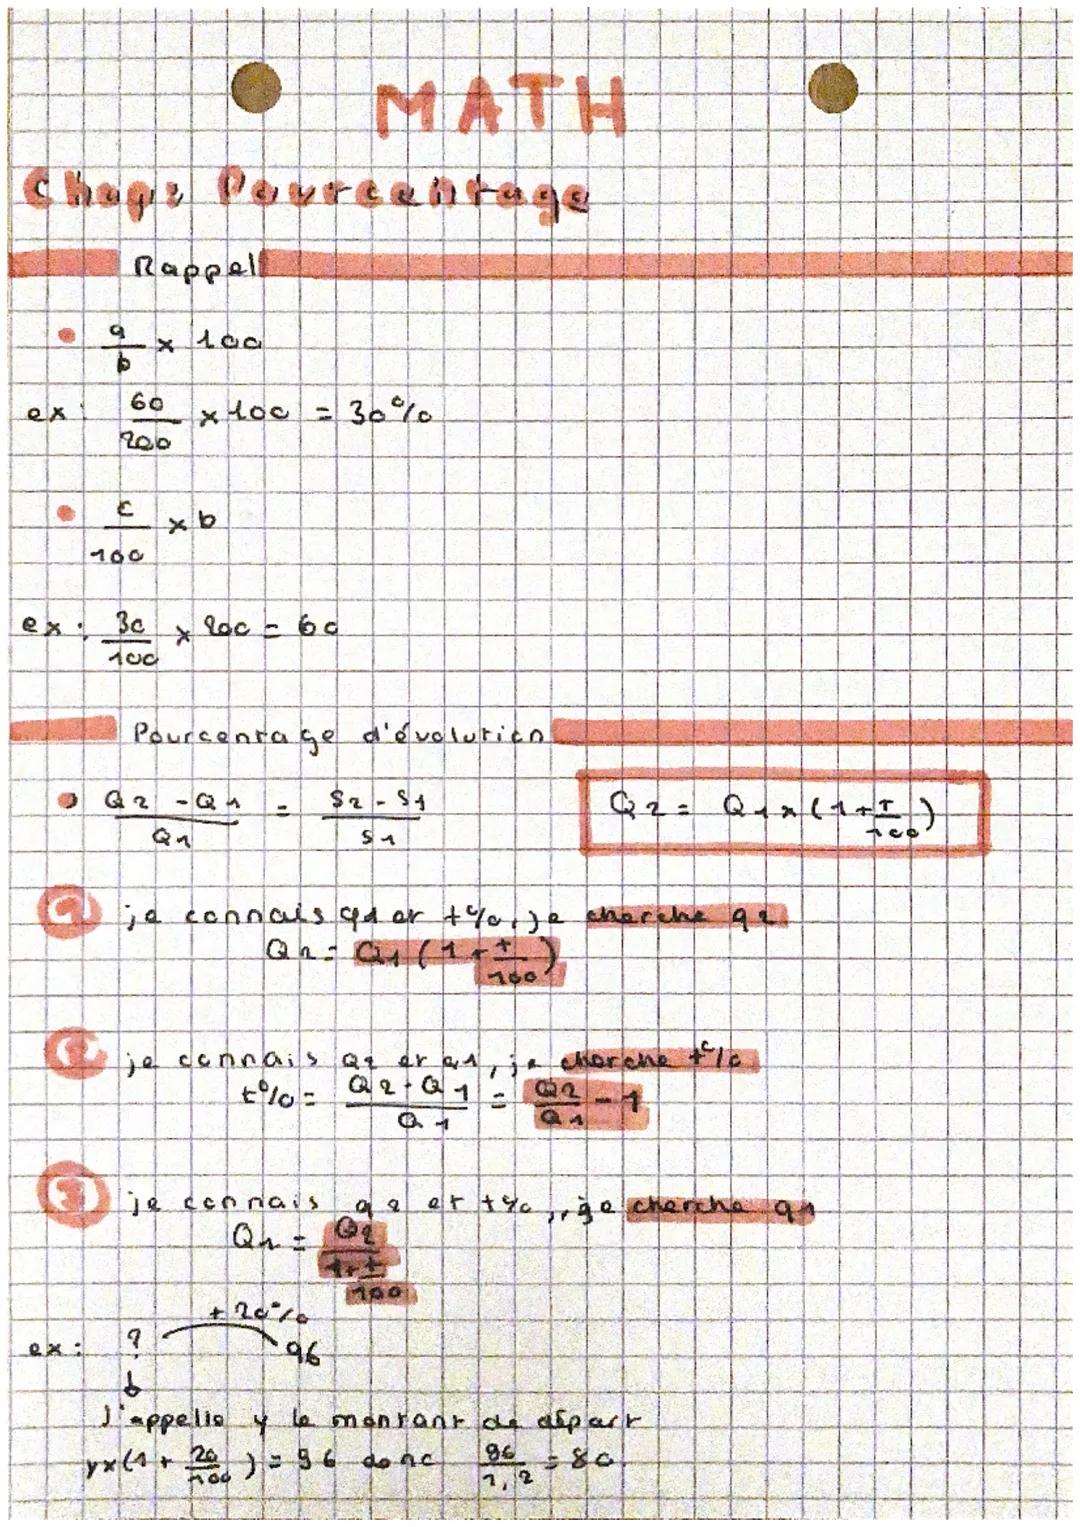 MATH
Chap: Pourcentage
Rappel
• a/b x 100
ex: 60/200 x 100 = 30%
• c/100 x b
ex: 30/100 x 200 = 60
Pourcentage d'évolution
• Q2 - Q1 / Q1 = S2 - S1 / S1
Q2 = Q1 x (1 + t/100)
1 je connais q1 et t%, je cherche q2
Q2 = Q1 (1 + t/100)
2 je connais Q2 et q1, je cherche t%
t% = Q2 - Q1 / Q1 = Q2/Q1 - 1
3 je connais q2 et t%, je cherche q1
Q1 = Q2 / 1 + t/100
+ 20%
ex: ? 96
J'appelle y le montant de départ
y x (1 + 20/100) = 96 donc 96/1,2 = 80